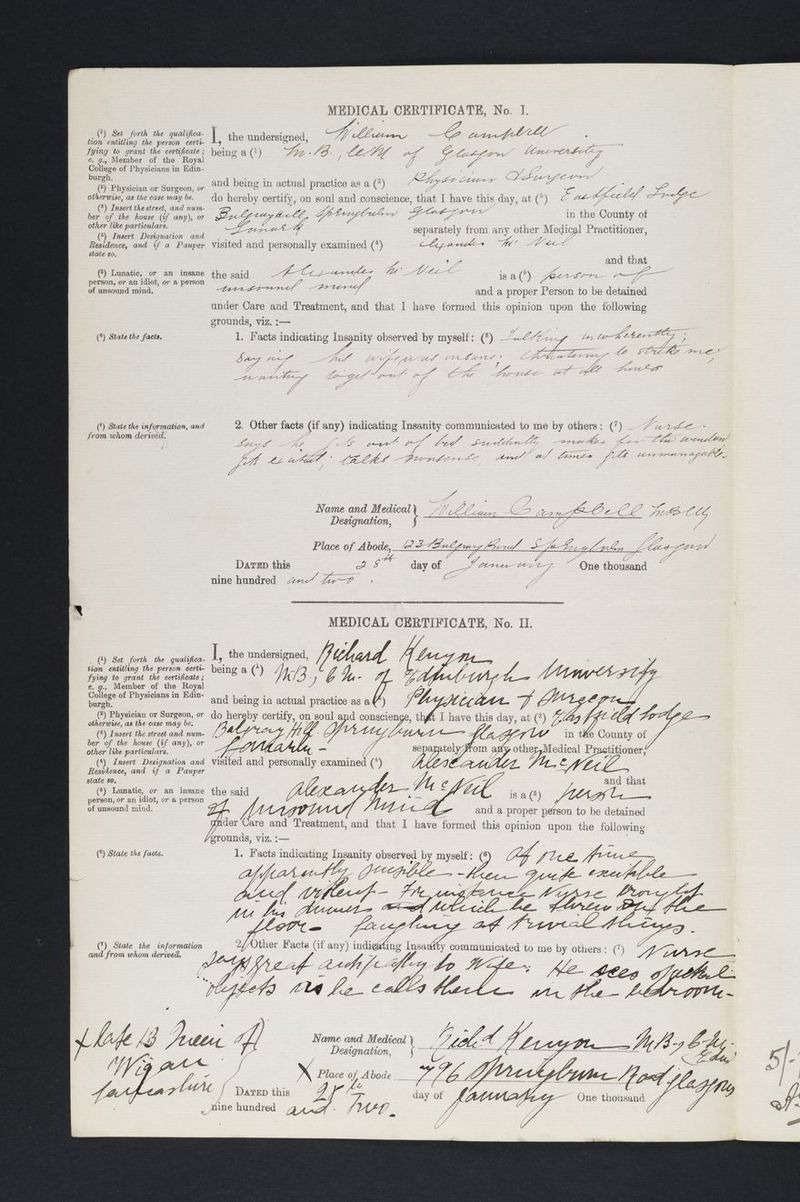 MEDICAL CERTIFICATE, No. I.
(¹) Set forth the qualification entitling the person certifying to grant the certificate; e. g., Member of the Royal College of Physicians in Edinburgh.
(²) Physician or Surgeon, or otherwise, as the case may be.
(³) Insert the street, and number of the house (if any), or other like particulars.
(⁴) Insert Designation and Residence, and if a Pauper state so.
(⁵) Lunatic, or an insane person, or an idiot, or a person of unsound mind.
I, the undersigned, William Campbell
being a (¹) M.B., C.M of Glasgow University
and being in actual practice as a (²) Physician & Surgeon
do hereby certify, on soul and conscience, that I have this day, at (³) Eastfield Lodge
Balgrayhill, Springburn Glasgow in the County of
Lanark separately from any other Medical Practitioner,
visited and personally examined (⁴) Alexander Mc Neil
and that
the said Alexander Mc Neil is a (⁵) person of
unsound mind and a proper Person to be detained
under Care and Treatment, and that I have formed this opinion upon the following
grounds, viz. :—
(⁶) State the facts.
1. Facts indicating Insanity observed by myself: (⁶) Talking incoherently;
saying his wife was insane; threatening to strike me;
wanting to get out of the house at all hours
(⁷) State the information, and from whom derived.
2. Other facts (if any) indicating Insanity communicated to me by others: (⁷) Nurse
says he gets out of bed suddenly makes for the window
gets excited; talks nonsense, and at times gets unmanagable.
Name and Medical Designation, } William Campbell MB CM
Place of Abode, 123 Balgray Road Springburn Glasgow
DATED this 25th day of January One thousand
nine hundred and two.
MEDICAL CERTIFICATE, No. II.
(¹) Set forth the qualification entitling the person certifying to grant the certificate; e. g., Member of the Royal College of Physicians in Edinburgh.
(²) Physician or Surgeon, or otherwise, as the case may be.
(³) Insert the street and number of the house (if any), or other like particulars.
(⁴) Insert Designation and Residence, and if a Pauper state so.
(⁵) Lunatic, or an insane person, or an idiot, or a person of unsound mind.
I, the undersigned, Richard Kenyon
being a (¹) M.B., C.M. of Edinburgh University
and being in actual practice as a (²) Physician & Surgeon
do hereby certify, on soul and conscience, that I have this day, at (³) Eastfield Lodge
Balgray Hill Springburn Glasgow in the County of
Lanark - separately from any other Medical Practitioner,
visited and personally examined (⁴) Alexander McNeil
and that
the said Alexander McNeil is a (⁵) person
of unsound mind and a proper person to be detained
under Care and Treatment, and that I have formed this opinion upon the following
grounds, viz. :—
(⁶) State the facts.
1. Facts indicating Insanity observed by myself: (⁶) At one time
apparently sensible - then quite excitable
and violent - For instance Nurse brought
in his dinner and which he threw on the
floor - laughing at trivial things.
(⁷) State the information and from whom derived.
2. Other Facts (if any) indicating Insanity communicated to me by others: (⁷) Nurse
says great antipathy to Wife. He sees
objects as he calls them in the bedroom -
Name and Medical Designation, } Richd Kenyon MB, C.M. Edin
X Place of Abode 796 Springburn Road Glasgow
DATED this 25th day of January One thousand
nine hundred and Two.
X late 13 Queen St
Wigan
Lancashire
5/-